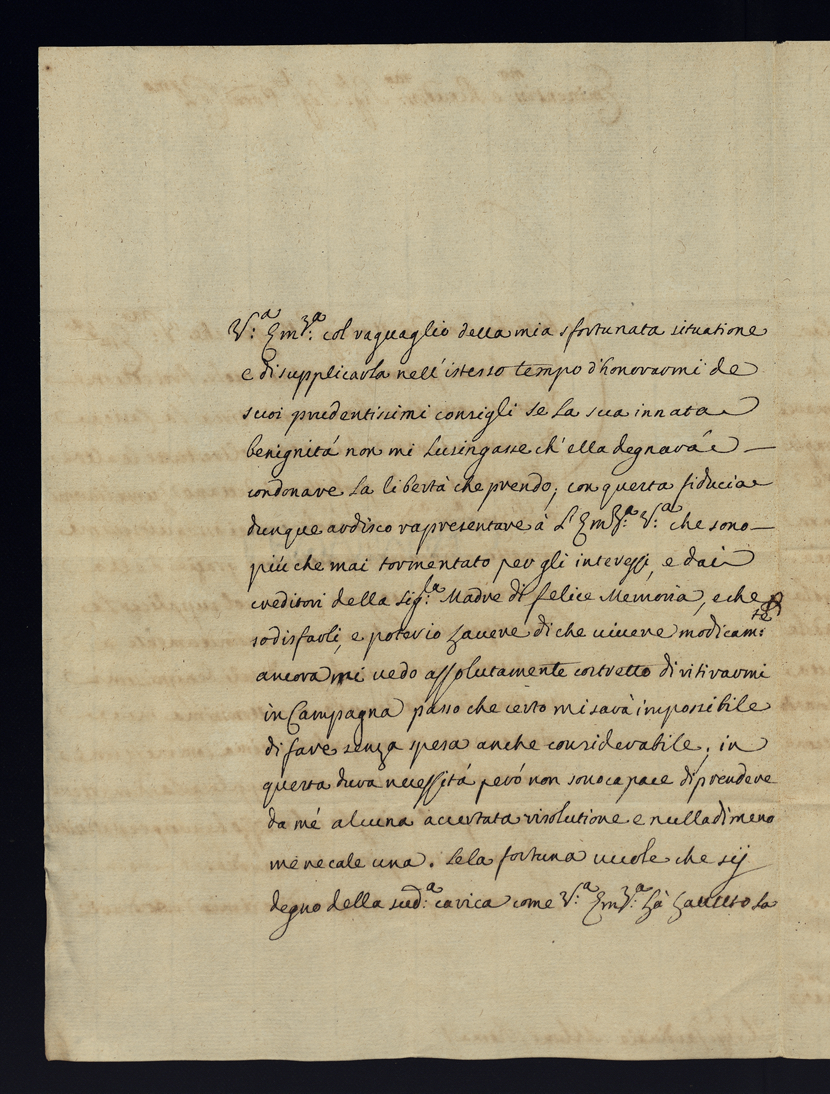 V:ª Emz:ª col raguaglio della mia sfortunata situatione
e di supplicarla nell' istesso tempo d'honorarmi de
suoi prudentissimi consigli se La sua innata
benignitá non mi Lusingasse ch' ella degnará
condonare La libertà che prendo; con questa fiducia
dunque ardisco rapresentare à L' Emz:ª V:ª che sono
più che mai tormentato per gli interessi, e dai
creditori della Sig:ra Madre di felice Memoria, e che p
sodisfarli, e potervio havere di che vivere modicam:te
ancora mi vedo assolutamente costretto di ritirarmi
in Campagna passo che certo mi sarà impossibile
di fare senza spesa anche considerabile; in
questa dura necessitá peró non sono capace di prendere
da mé alcuna accertata risolutione e nulladimeno
me ne cale una. Se la fortuna vuole che sij
degno della sud:ª carica come V:ª Emz:ª hà havuto la